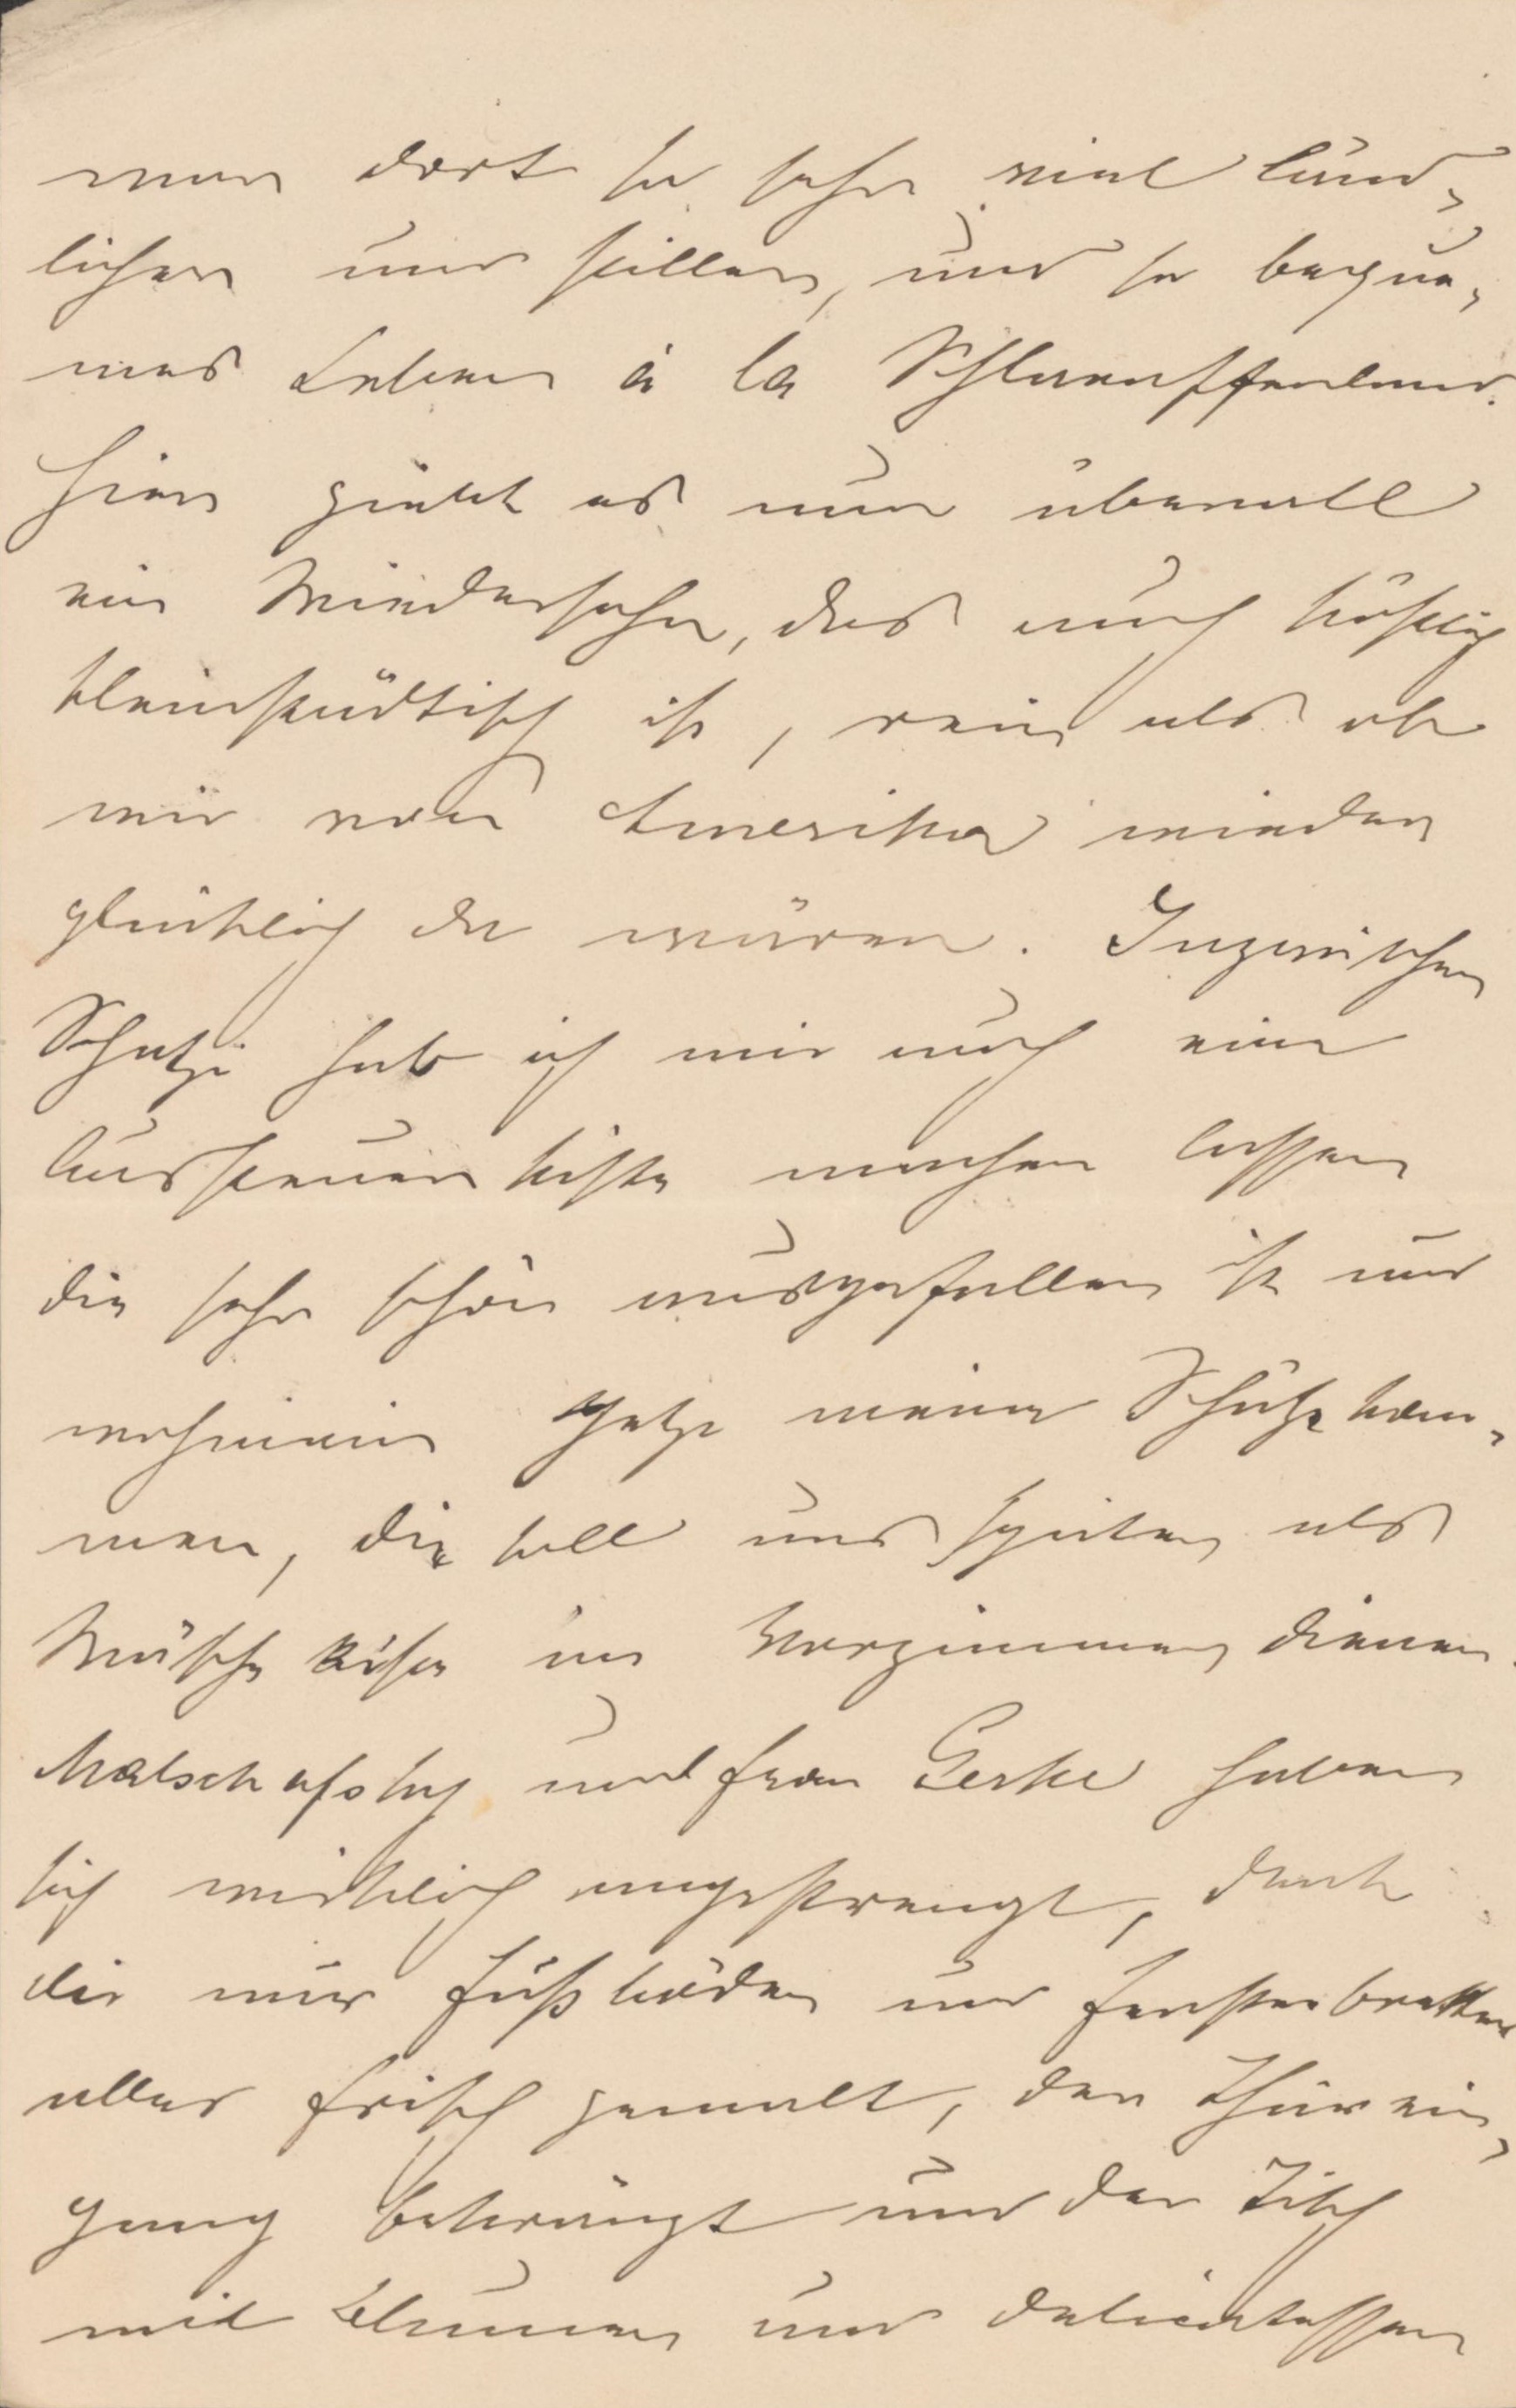 man dort so sehr viel länd-
licher und stiller, und so beque-
mes Leben à la Schlaraffenland.
Hier giebt es nun überall
ein Wiedersehn, das auch köstlich
kleinstädtisch ist, rein als ob
wir von Amerika wieder
glücklich da wären. Inzwischen
Schatzi hab ich mir auch eine
Aussteuerkiste machen lassen
die sehr schön ausgefallen ist und
wohinein jetzt meine Schätze kom-
men, die soll uns später als
Wäschekiste im Vorzimmer dienen.
Matschafsky und Frau Gerke haben
sich wirklich angestrengt, denk
dir nur Fußböden und Fensterbretter
alles frisch gemalt, der Thürein-
gang bekränzt und der Tisch
mit Blumen und Delicatessen